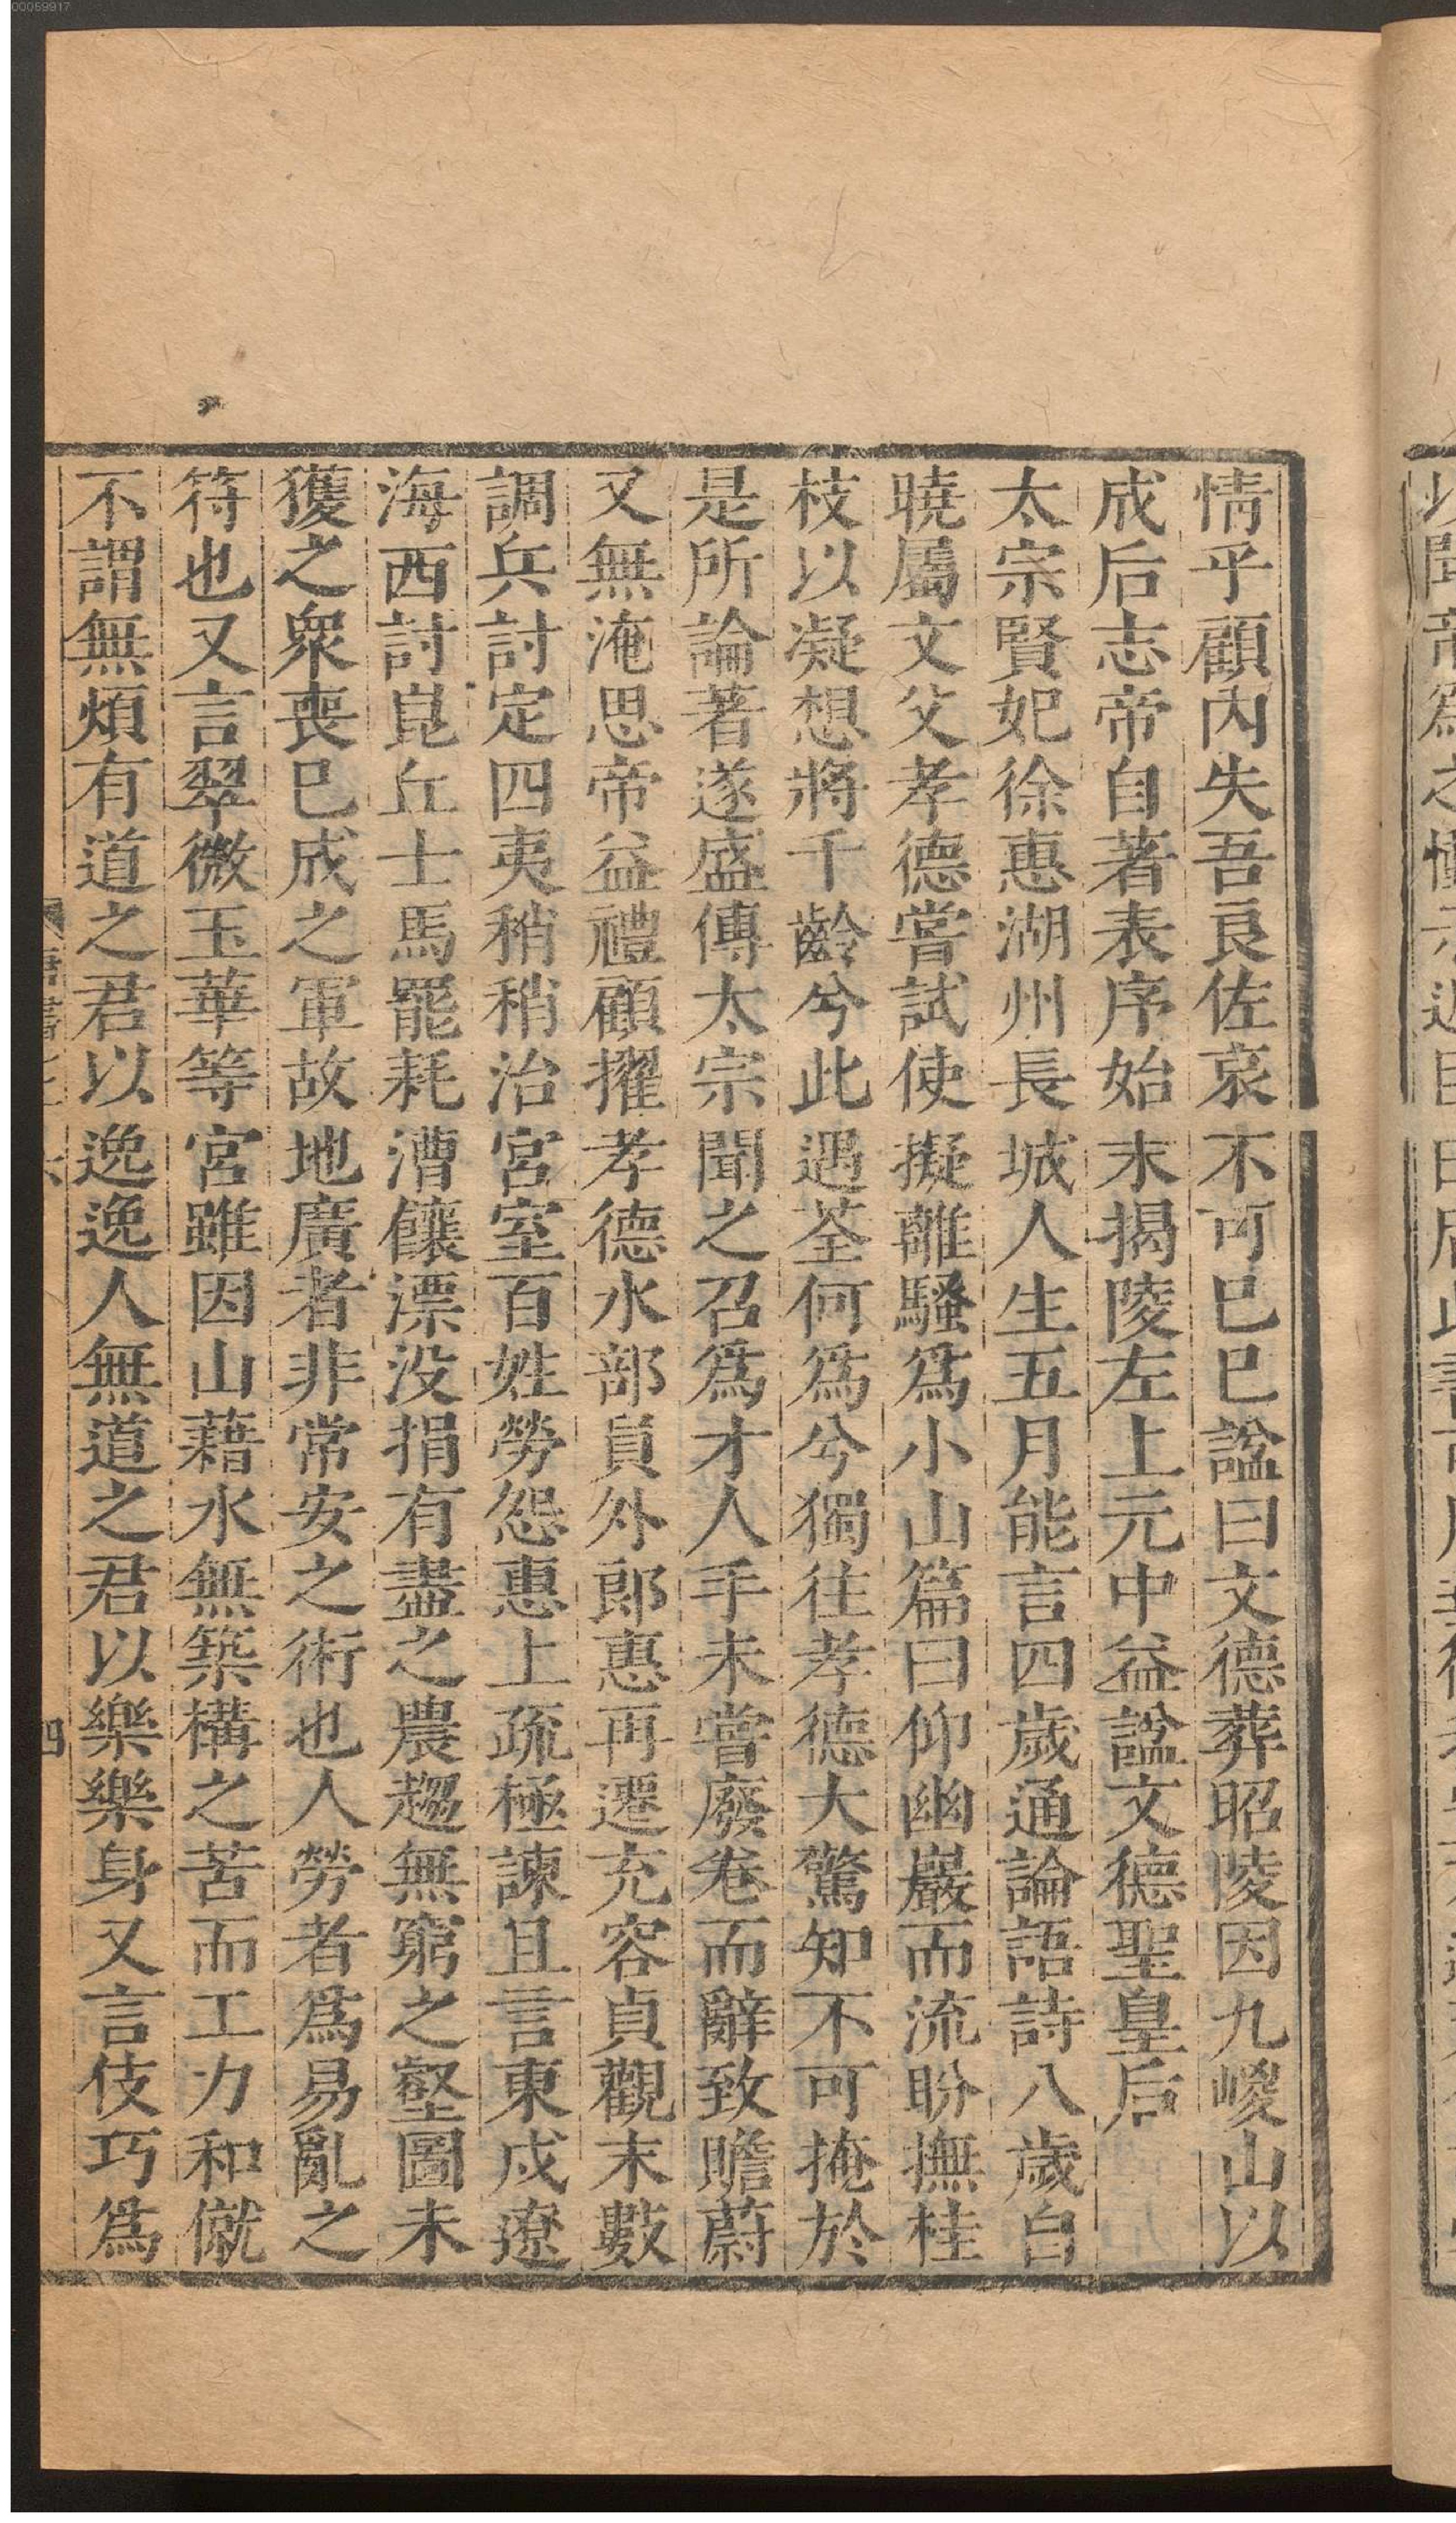 00059917
情乎顧內失吾良佐哀不可巳巳諡曰文德葬昭陵因九嵕山以
成后志帝自著表序始末揭陵左上元中益諡文德聖皇后
太宗賢妃徐惠湖州長城人生五月能言四歲通論語詩八歲自
曉屬文父孝德嘗試使擬離騷爲小山篇曰仰幽巖而流盼撫桂
枝以凝想將千齡兮此遇荃何爲兮獨往孝德大驚知不可掩於
是所論著遂盛傳太宗聞之召爲才人手未嘗廢卷而辭致贍蔚
又無淹思帝益禮顧擢孝德水部員外郎惠再遷充容貞觀末數
調兵討定四夷稍稍治宮室百姓勞怨惠上疏極諫且言東戍遼
海西討崑丘士馬罷耗漕饟漂没捐有盡之農趨無窮之壑圖未
獲之衆喪巳成之軍故地廣者非常安之術也人勞者爲易亂之
符也又言翠微玉華等宮雖因山藉水無築構之苦而工力和僦
不謂無煩有道之君以逸逸人無道之君以樂樂身又言伎巧爲
四